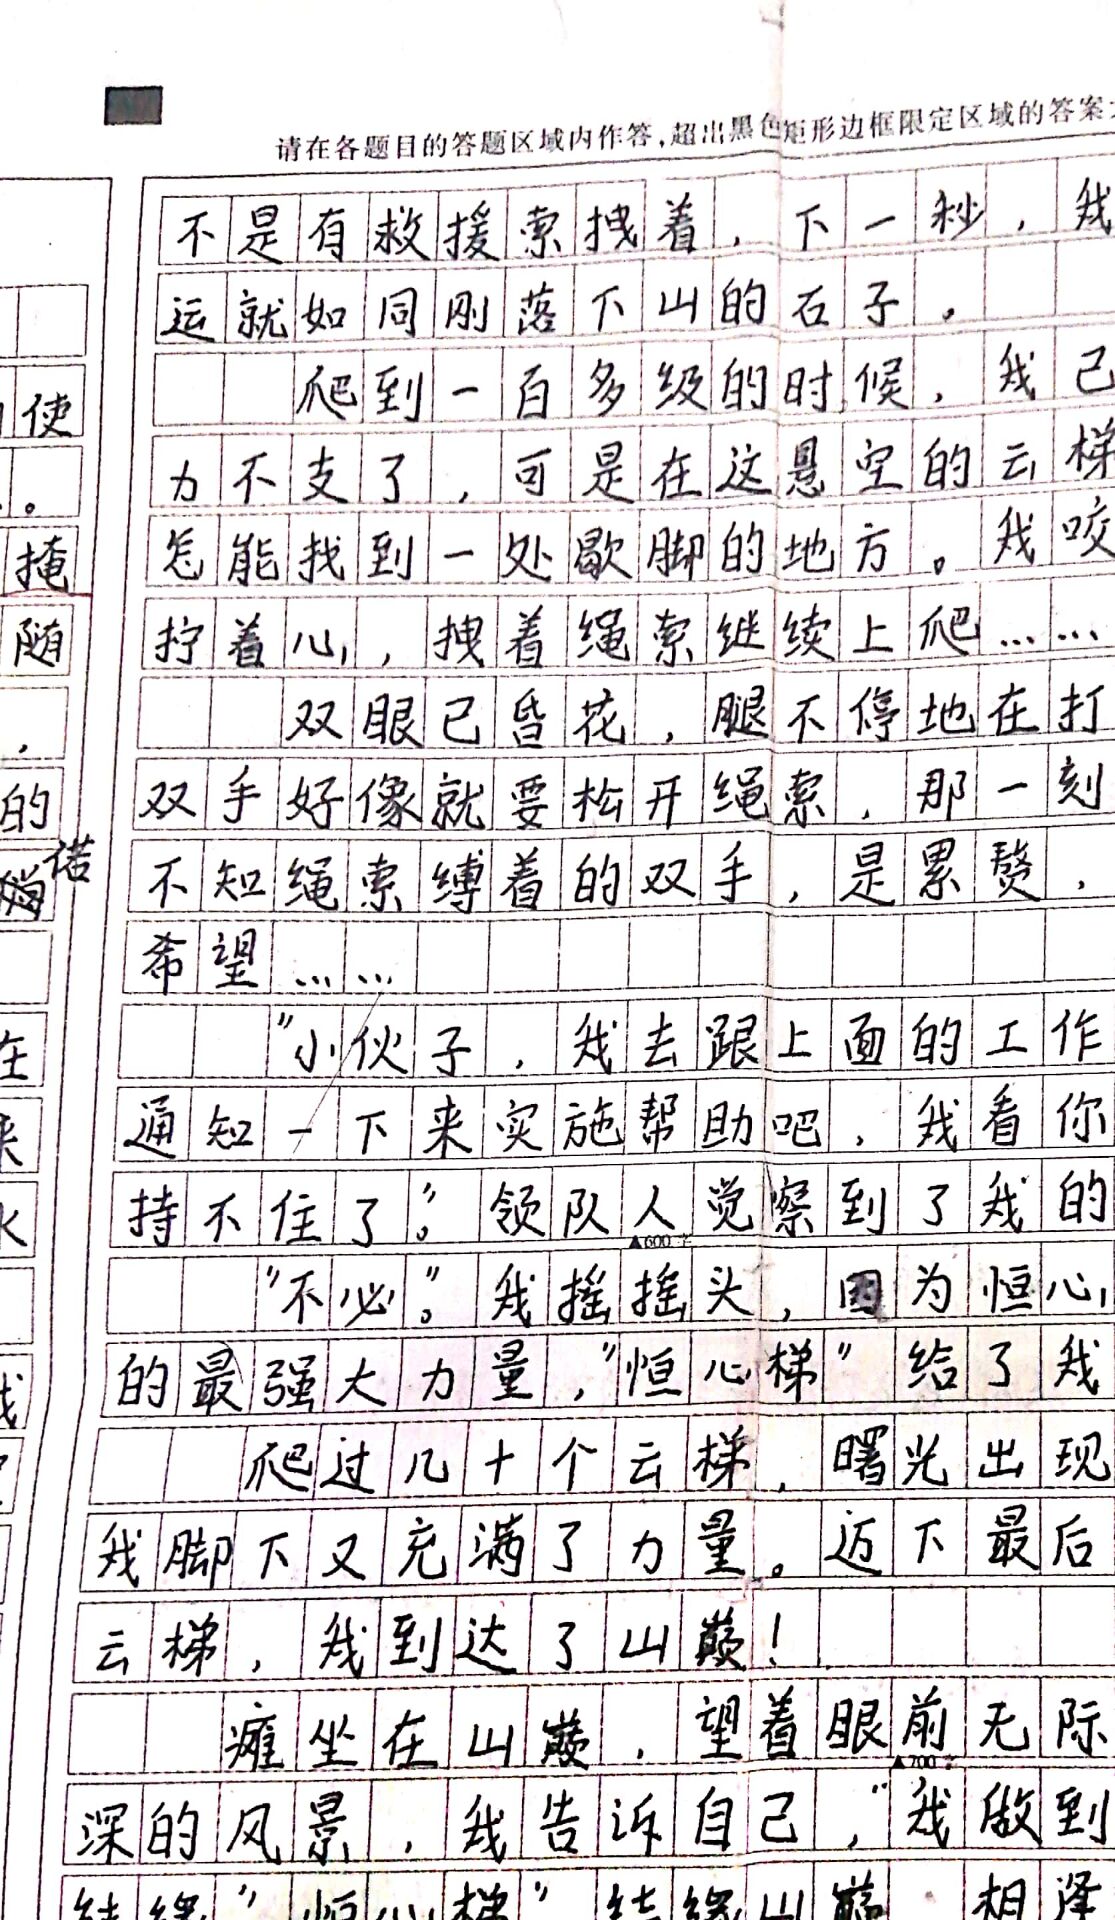 请在各题目的答题区域内作答,超出黑色矩形边框限定区域的答案
不是有救援索拽着，下一秒，我
运就如同刚落下山的石子。
爬到一百多级的时候，我已
力不支了，可是在这悬空的云梯
怎能找到一处歇脚的地方。我咬
拧着心，拽着绳索继续上爬……
双眼已昏花，腿不停地在打
双手好像就要松开绳索，那一刻
不知绳索缚着的双手，是累赘，
希望……
“小伙子，我去跟上面的工作
通知一下来实施帮助吧，我看你
持不住了”。领队人觉察到了我的
▲600字
“不必。”我摇摇头，因为恒心
的最强大力量，“恒心梯”给了我
爬过几十个云梯，曙光出现
我脚下又充满了力量。迈下最后
云梯，我到达了山巅！
瘫坐在山巅，望着眼前无际
▲700字
深的风景，我告诉自己，“我做到
结缘“恒心梯”结缘山巅，相泽
使
。
掩
随
，
的
诺
在
来
水